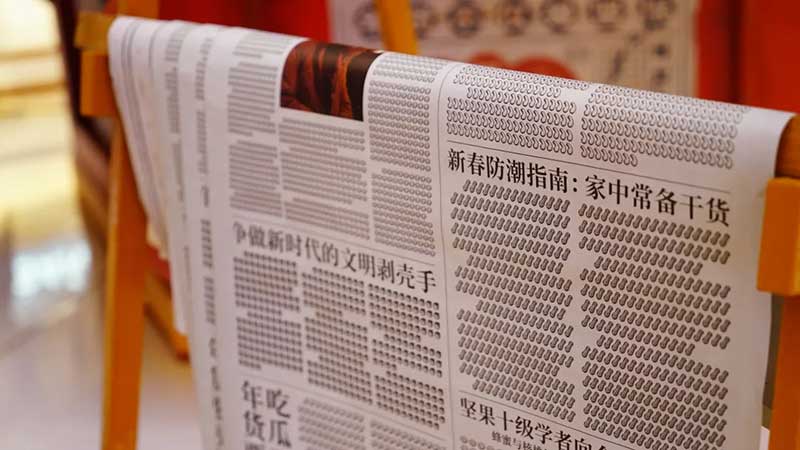 新春防潮指南：家中常备干货
争做新时代的文明剥壳手
年吃
货瓜
坚果十级学者向
蜂蜜与核桃